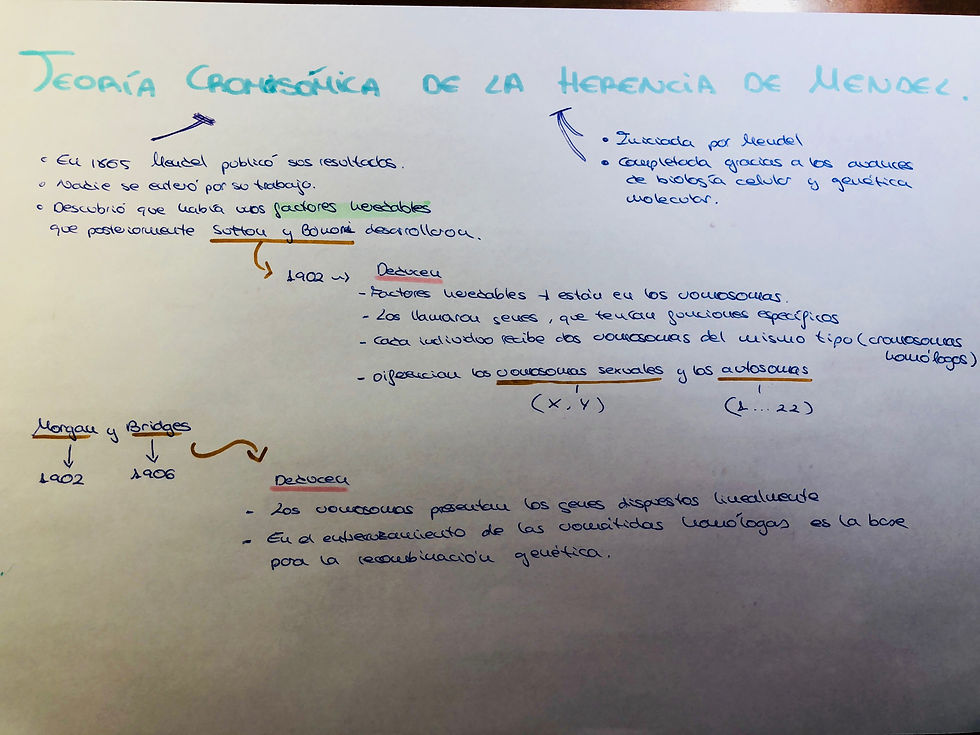 TEORÍA CROMOSÓMICA DE LA HERENCIA DE MENDEL.
• Iniciada por Mendel
• Completada gracias a los avances
de biología celular y genética
molecular.
• En 1865 Mendel publicó sus resultados.
• Nadie se enteró por su trabajo.
• Descubrió que había unos factores heredables
que posteriormente Sutton y Boveri desarrollaron.
1902 → Deducen
- Factores heredables → están en los cromosomas.
- Los llamaron genes, que tenían funciones específicas
- Cada individuo recibe dos cromosomas del mismo tipo (cromosomas
homólogos)
- Diferencian los cromosomas sexuales y los autosomas
(X, Y) (1 ... 22)
Morgan y Bridges
1902 1906
Deducen
- Los cromosomas presentan los genes dispuestos linealmente
- En el entrecruzamiento de las cromátidas homólogas es la base
para la recombinación genética.